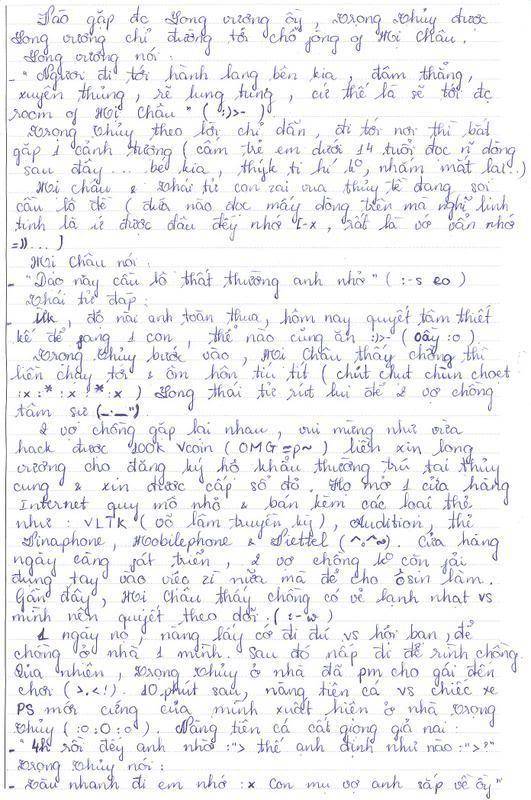 Sao gặp đc Long vương ồy, Trọng Thủy được
Long vương chỉ đường tới chỗ jống of Mị Châu.
Long vương nói:
- " Ngươi đi tới hành lang bên kia, đâm thẳng,
xuyên thủng, rẽ lung tung, cứ thế là sẽ tới đc
room of Mị Châu " ( :)>- )
Trọng Thủy theo lời chỉ dẫn, đi tới nơi thì bắt
gặp 1 cảnh tượng ( cấm trẻ em dưới 14 tuổi đọc n~ dòng
sau đây ... bé kia, thyk ti hí k°, nhắm mắt lại..)
Mị Châu & thái tử con zai vua thủy tề đang soi
cầu lô đề ( đứa nào đọc mấy dòng trên mà nghĩ linh
tinh là ứ được đâu đấy nhớ [-x, rất là vớ vẩn nhớ
=))... )
Mị Châu nói:
- "Dạo này cầu lô thất thường anh nhở" ( :-s eo )
Thái tử đáp:
- Uk, độ này anh toàn thua, hôm nay quyết tâm thiết
kế để jang 1 con, thế nào cũng ăn :)>- ( Oầy :o )
Trọng Thủy bước vào, Mị Châu thấy chồng thì
liền chạy tới & ôm hôn tíu tít ( chút chụt chùn choẹt
:x :* :x :* :x ) Long thái tử rút lui để 2 vợ chồng
tâm sự (_._")
2 vợ chồng gặp lại nhau, vui mừng như vừa
hack được 100k Vcoin ( OMG =p~ ) liền xin long
vương cho đăng ký hộ khẩu thường trú tại thủy
cung & xin được cấp sổ đỏ. Họ mở 1 cửa hàng
Internet quy mô nhỏ & bán kèm các loại thẻ
như: VLTK ( võ lâm truyền kỳ ), Audition, thẻ
Vinaphone, Mobilephone & Viettel (^o^~). Cửa hàng
ngày càng fát triển, 2 vợ chồng k° còn fải
đụng tay vào việc zì nữa mà để cho ôsin làm.
Gần đây, Mị Châu thấy chồng có vẻ lạnh nhạt vs
mình nên quyết theo dõi. ( :-w )
1 ngày nọ, nàng lấy cớ đi dú vs hội bạn, để
chồng ở nhà 1 mình. Sau đó nấp đi để rình chồng.
Quả nhiên, Trọng Thủy ở nhà đã pm cho gái đến
chơi (>.<!). 10 phút sau, nàng tiên cá vs chiếc xe
PS mới cứng của mình xuất hiện ở nhà Trọng
Thủy ( :o :O :o ). Nàng tiên cá cất giọng giả nai:
- " 4h rồi đấy anh nhở :"> thế anh định như nào :">?"
Trọng Thủy nói:
- Vầu nhanh đi em nhớ :x Con mụ vợ anh sắp về ồy"